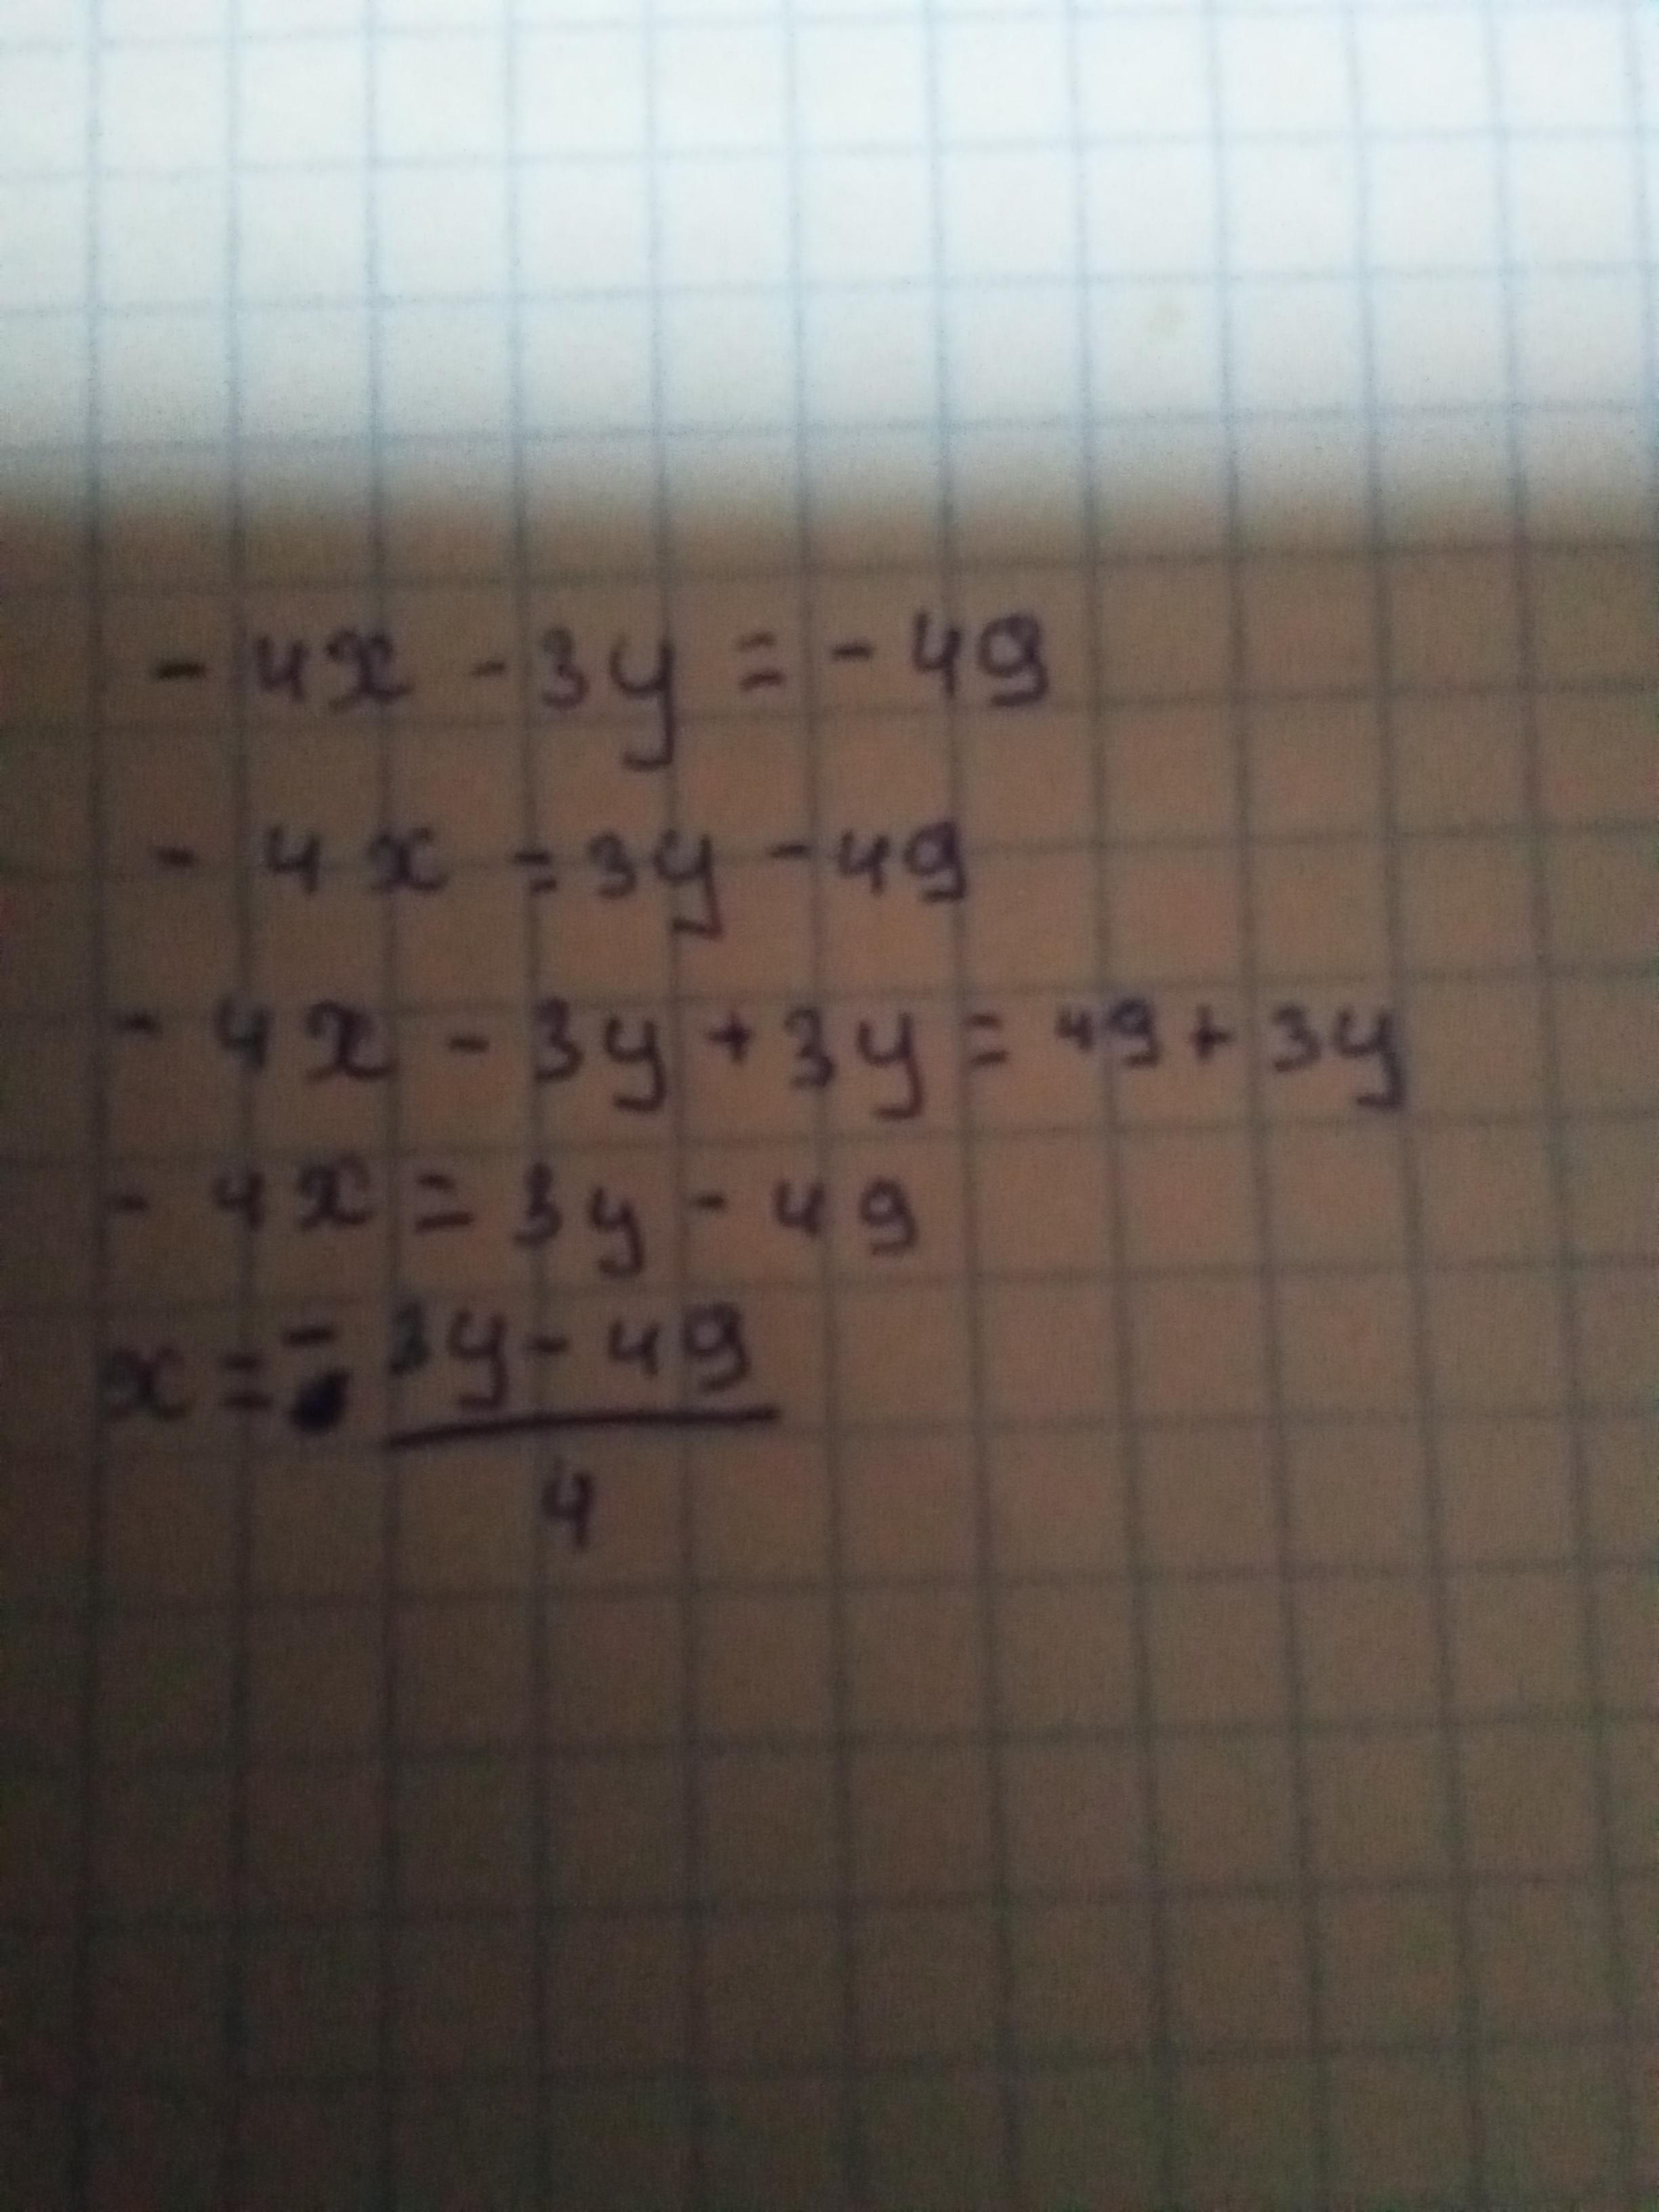 - 4x - 3y = - 49
- 4x = 3y - 49
- 4x - 3y + 3y = 49 + 3y
- 4x = 3y - 49
x = - 3y - 49
4